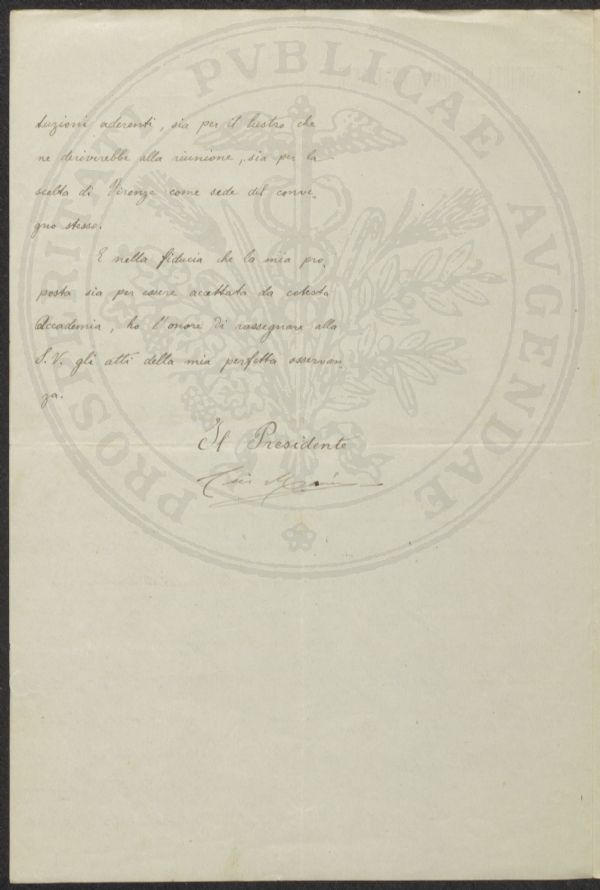 PROSPERITATI PVBLICAE AVGENDAE
tuzioni aderenti, sia per il lustro che
ne deriverebbe alla riunione, sia per la
scelta di Firenze come sede del conve-
gno stesso.
E nella fiducia che la mia pro
posta sia per essere accettata da cotesta
Accademia, ho l'onore di rassegnare alla
S. V. gli atti della mia perfetta osservan
za.
Il Presidente